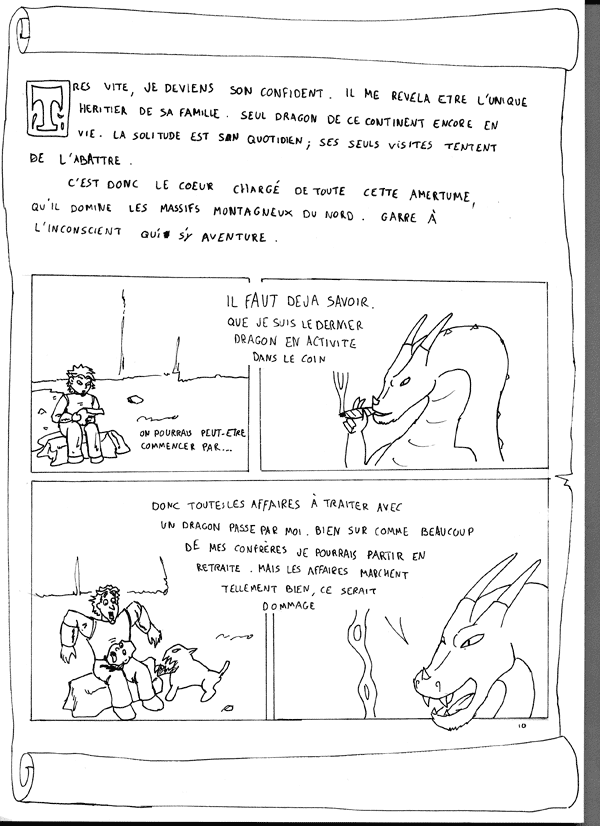 TRES VITE, JE DEVIENS SON CONFIDENT. IL ME REVELA ETRE L'UNIQUE
HERITIER DE SA FAMILLE. SEUL DRAGON DE CE CONTINENT ENCORE EN
VIE. LA SOLITUDE EST SON QUOTIDIEN; SES SEULS VISITES TENTENT
DE L'ABATTRE.
C'EST DONC LE COEUR CHARGÉ DE TOUTE CETTE AMERTUME,
QU'IL DOMINE LES MASSIFS MONTAGNEUX DU NORD. GARRE À
L'INCONSCIENT QUI S'Y AVENTURE.
ON POURRAIS PEUT-ETRE
COMMENCER PAR...
IL FAUT DEJA SAVOIR.
QUE JE SUIS LE DERNIER
DRAGON EN ACTIVITE
DANS LE COIN
DONC TOUTES LES AFFAIRES À TRAITER AVEC
UN DRAGON PASSE PAR MOI. BIEN SUR COMME BEAUCOUP
DE MES CONFRÈRES JE POURRAIS PARTIR EN
RETRAITE. MAIS LES AFFAIRES MARCHENT
TELLEMENT BIEN, CE SERAIT
DOMMAGE
10